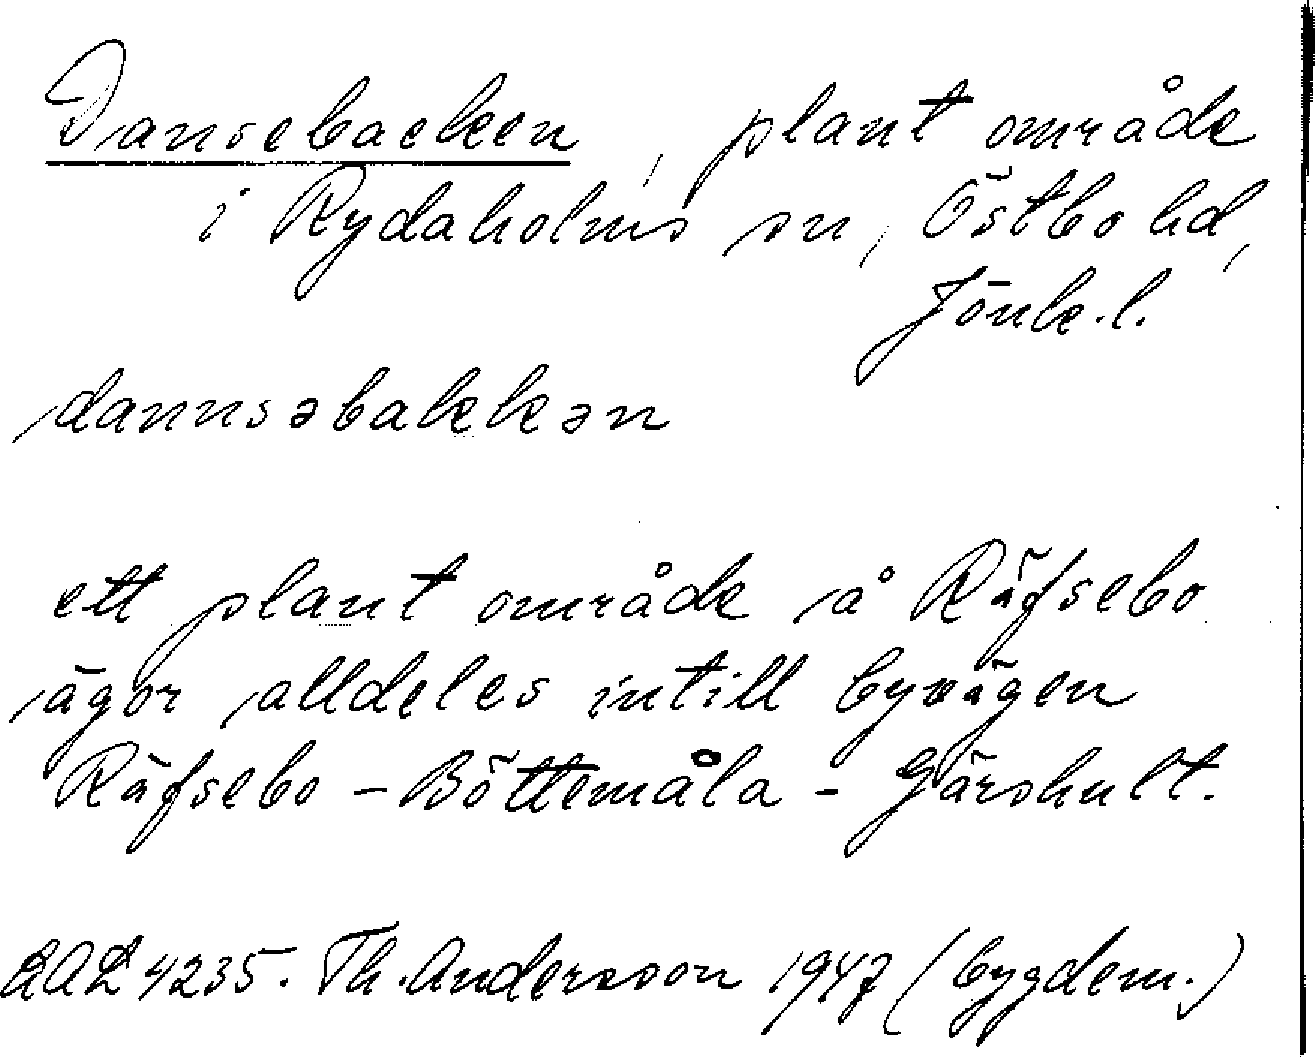 Dansebacken, plant område
i Rydaholms sn, Östbo hd,
Jönk.l.
dannsəbakkən
ett plant område å Räfsebo
ägor alldeles intill byvägen
Räfsebo - Böttemåla - Gärshult.
4235. Th. Andersson 1947 (bygdem.)